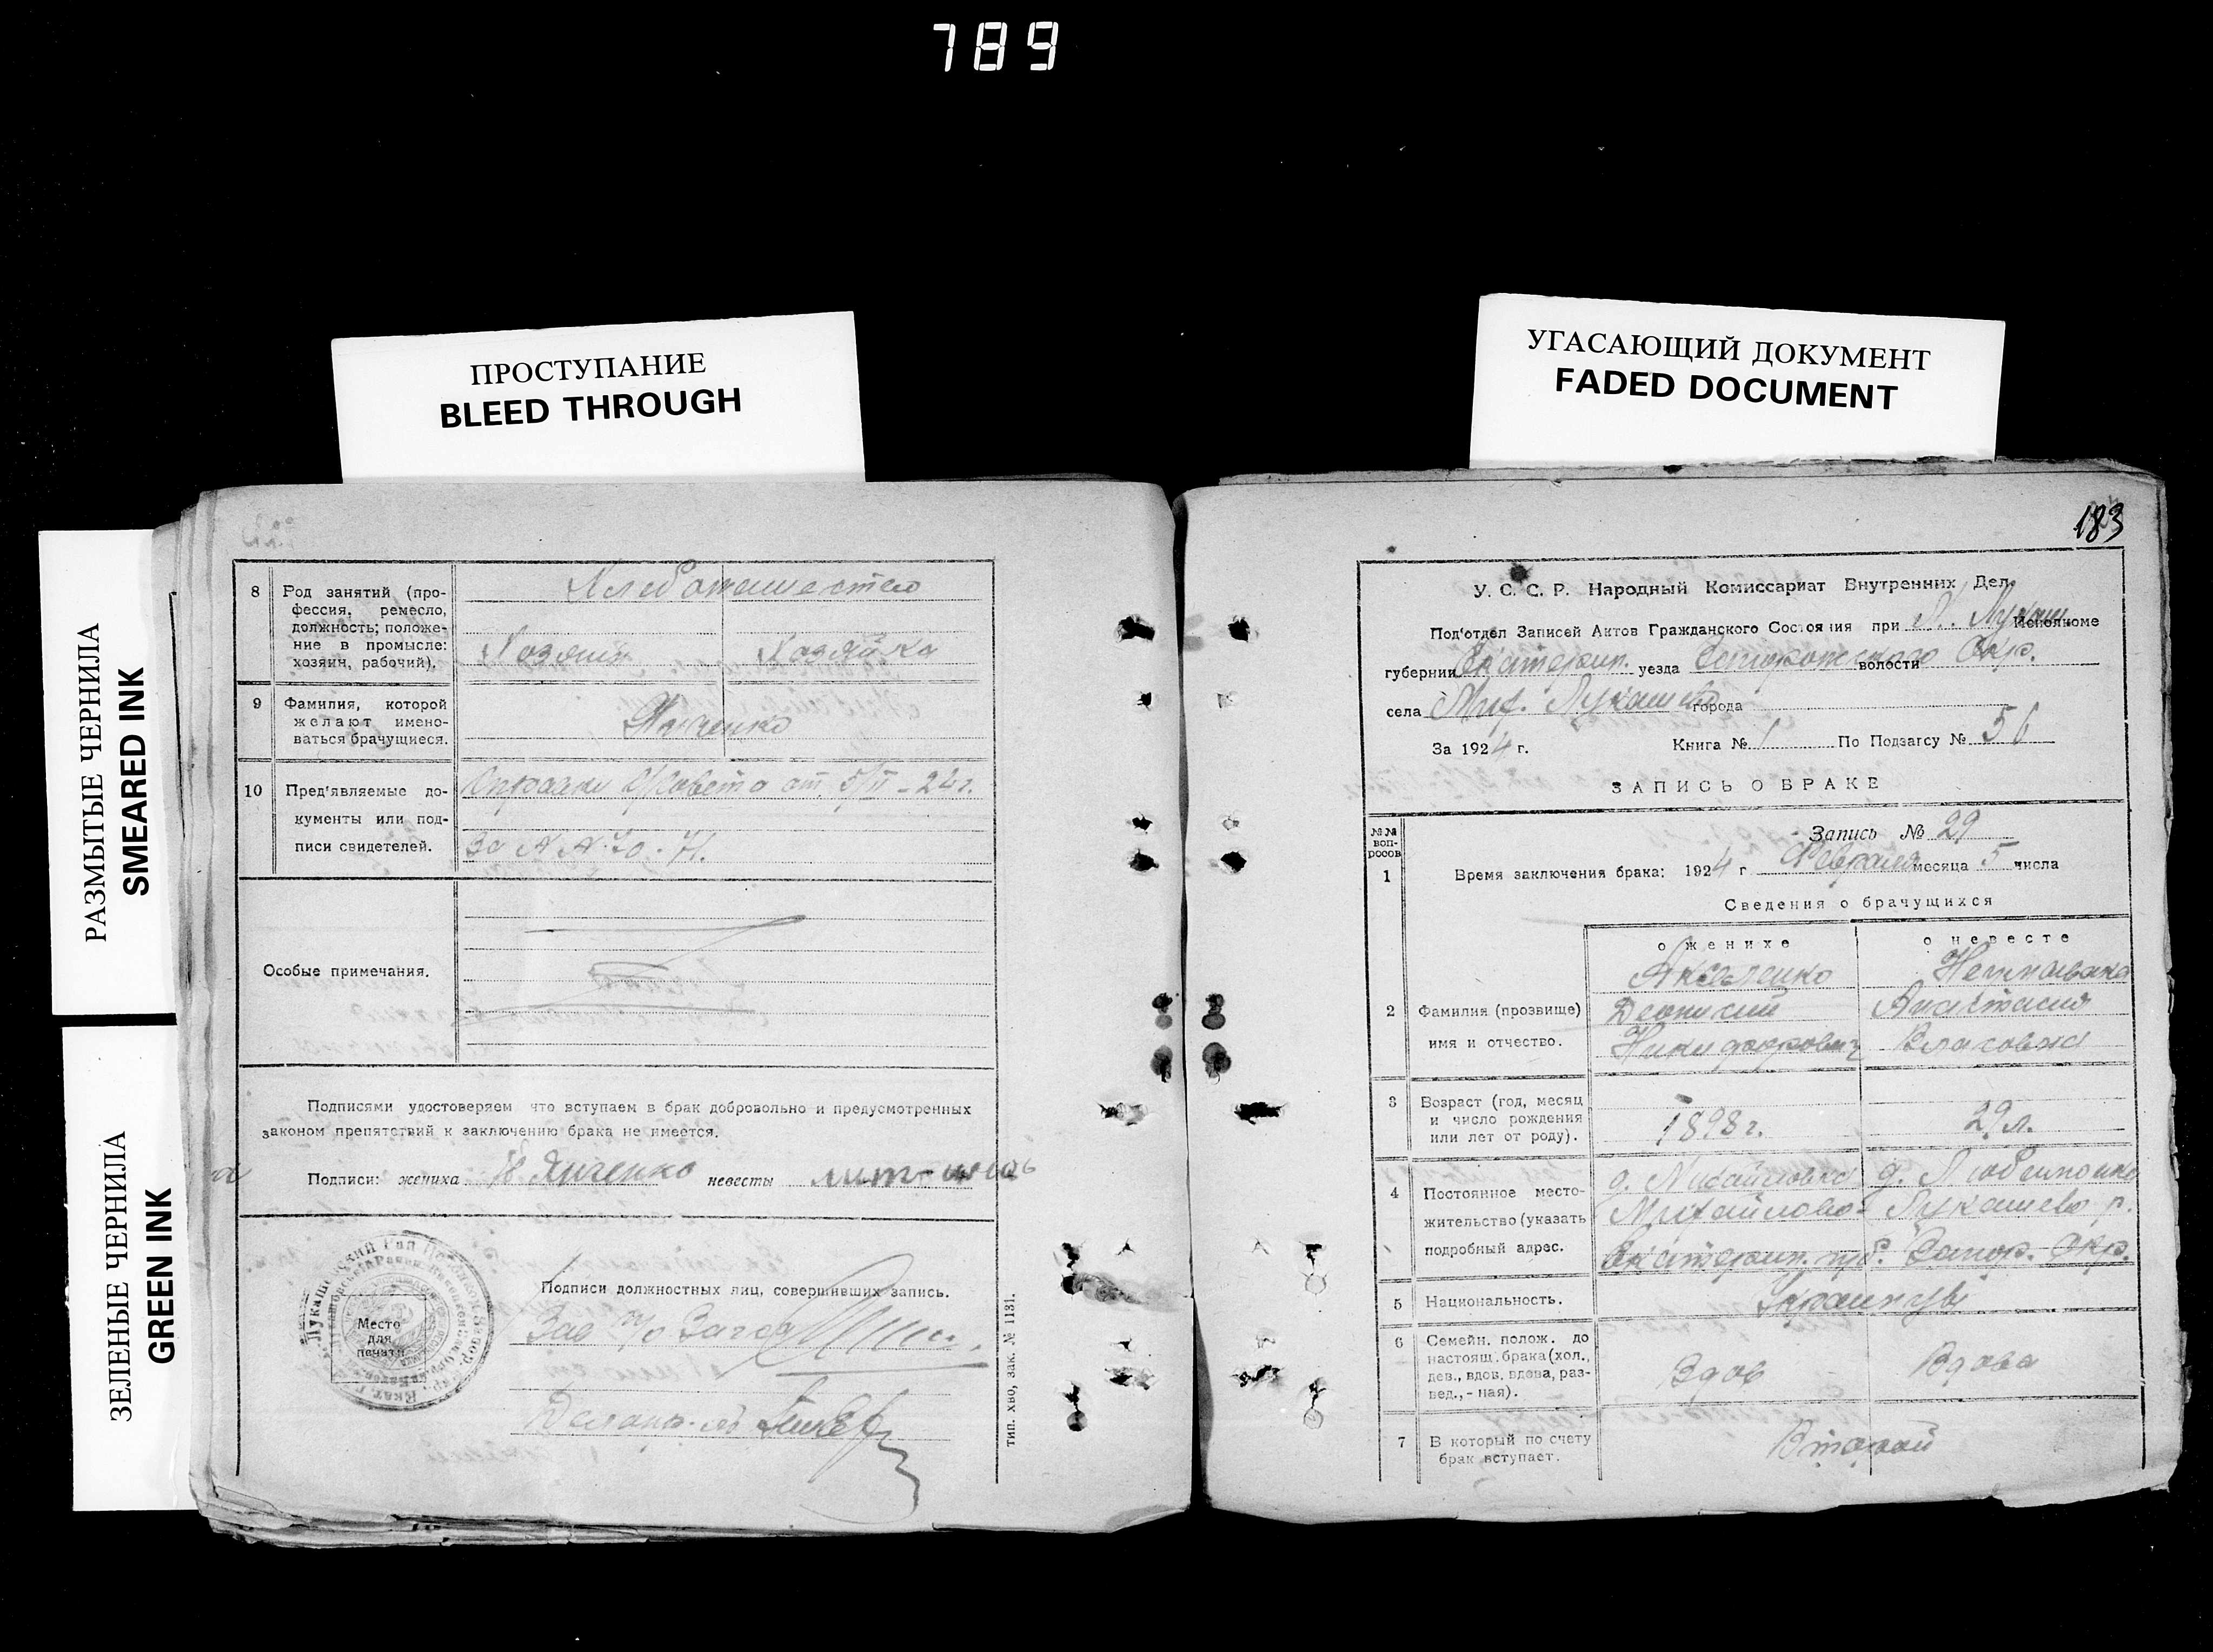 789
ПРОСТУПАНИЕ
BLEED THROUGH
УГАСАЮЩИЙ ДОКУМЕНТ
FADED DOCUMENT
РАЗМЫТЫЕ ЧЕРНИЛА
SMEARED INK
ЗЕЛЕНЫЕ ЧЕРНИЛА
GREEN INK
8 Род занятий (про-
фессия, ремесло,
должность; положе-
ние в промысле:
хозяин, рабочий).
Хлебопашество
Хозяин Хозяйка
9 Фамилия, которой
желают имено-
ваться брачущиеся.
Янченко
10 Пред'являемые до-
кументы или под-
писи свидетелей.
Справки С/Совета от 5/II-24 г.
За N N 70-71.
Особые примечания.
Подписями удостоверяем что вступаем в брак добровольно и предусмотренных
законом препятствий к заключению брака не имеется.
Подписи: жениха Янченко невесты
Место
для
печати
Подписи должностных лиц, совершивших запись.
Зав п/о Загса
Делопр-ль
тип. хво, зак. № 1131.
183
У. С. С. Р. Народный Комиссариат Внутренних Дел
Под'отдел Записей Актов Гражданского Состояния при Исполкоме
губернии Екатерин. уезда Запорожского волости Окр.
села Лукашево города
За 1924 г. Книга № 1 По Подзагсу № 56
ЗАПИСЬ О БРАКЕ
№№
воп-
росов
Запись № 29
1 Время заключения брака: 1924 г Февраля месяца 5 числа
Сведения о брачущихся
о женихе о невесте
2 Фамилия (прозвище)
имя и отчество.
Дионисий Анастасия
Никифорович Власовна
3 Возраст (год, месяц
и число рождения
или лет от роду).
1898 г. 29 л.
4 Постоянное место-
жительство (указать
подробный адрес.
Михайлово-Лукашево р.
Екатерин. губ. Запор. Окр.
5 Национальность. Украинцы
6 Семейн. полож. до
настоящ. брака (хол.,
дев., вдов, вдова, раз-
вед., - ная).
Вдов Вдова
7 В который по счету
брак вступает.
Второй